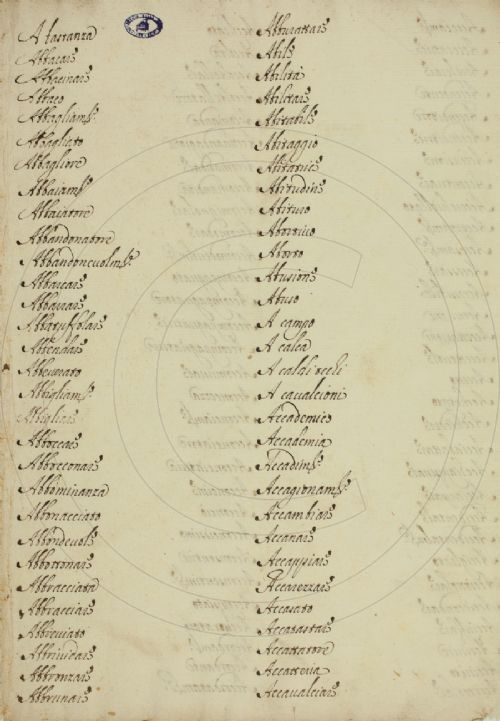 A bastanza
Abbacare
Abbacinare
Abbaco
Abbagliam.to
Abbagliato
Abbagliore
Abbaiam.to
Abbaiatore
Abbandonatore
Abbandonevolm.te
Abbarcare
Abbarrare
Abbendare
Abbeverato
Abbigliam.to
Abbigliare
Abboccare
Abbocconare
Abbominanza
Abbonacciato
Abbondevole
Abbottonare
Abbracciata
Abbracciare
Abbreviato
Abbrividare
Abbronzare
Abbrunare
Abburattare
Abile
Abilità
Abilitare
Abitabile
Abitaggio
Abitatrice
Abitudine
Abituro
Abortivo
Aborto
Abusione
Abuso
A campo
A calca
A caldi occhi
A cavalcioni
Accademico
Accademia
Accadim.to
Accagionam.to
Accambiare
Accanare
Accappiare
Accarezzare
Accasato
Accatastare
Accattatore
Accatteria
Accavalciare